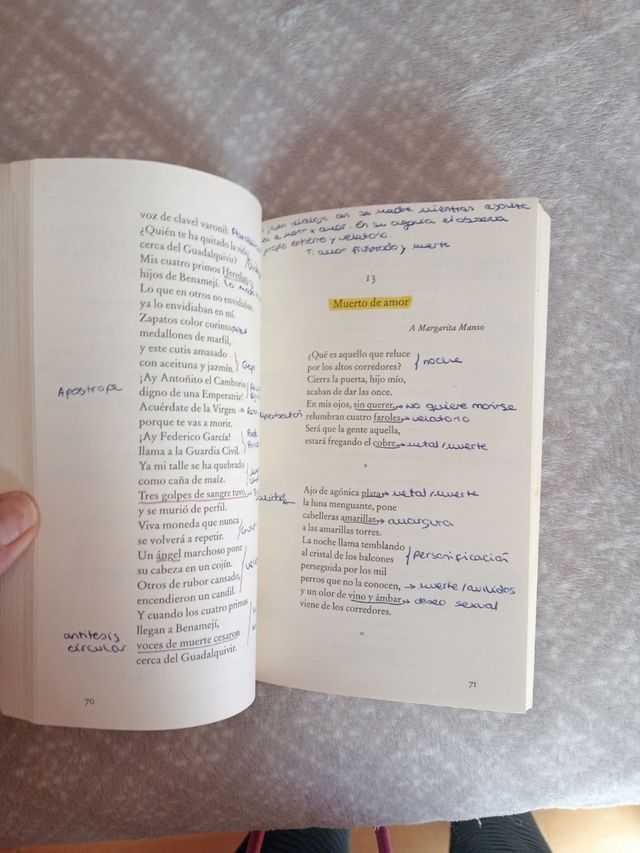 voz de clavel varonil:
¿Quién te ha quitado la vida
cerca del Guadalquivir?
Mis cuatro primos Heredias
hijos de Benamejí.
Lo que en otros no envidiaban,
ya lo envidiaban en mí.
Zapatos color corinto,
medallones de marfil,
y este cutis amasado
con aceituna y jazmín.
¡Ay Antoñito el Camborio
Apóstrofe
digno de una Emperatriz!
Acuérdate de la Virgen
porque te vas a morir.
¡Ay Federico García!
llama a la Guardia Civil.
Ya mi talle se ha quebrado
como caña de maíz.
Tres golpes de sangre tuvo,
y se murió de perfil.
Viva moneda que nunca
se volverá a repetir.
Un ángel marchoso pone
su cabeza en un cojín.
Otros de rubor cansado,
encendieron un candil.
Y cuando los cuatro primos
llegan a Benamejí,
antítesis
circular
voces de muerte cesaron
cerca del Guadalquivir.
70
con su madre mientras
amor. En su agonía él observa
propio entierro y velatorio.
T: amor frustrado y muerte
13
Muerto de amor
A Margarita Manso
¿Qué es aquello que reluce
por los altos corredores? noche
Cierra la puerta, hijo mío,
acaban de dar las once.
En mis ojos, sin querer, no quiere morirse
relumbran cuatro faroles. velatorio
Será que la gente aquella,
estará fregando el cobre. metal/muerte
*
Ajo de agónica plata metal/muerte
la luna menguante, pone
cabelleras amarillas amargura
a las amarillas torres.
La noche llama temblando
al cristal de los balcones personificación
perseguida por los mil
perros que no la conocen, muerte/aullidos
y un olor de vino y ámbar deseo sexual
viene de los corredores.
*
71